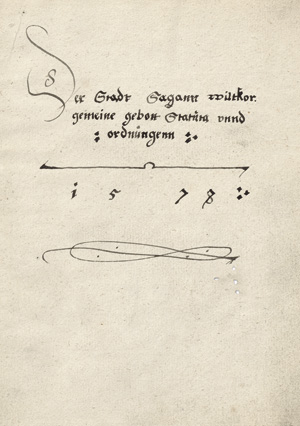 Der Stadt Sagann Wilkor.
gemeine gebott Statuta vnnd
ordnungenn
1578